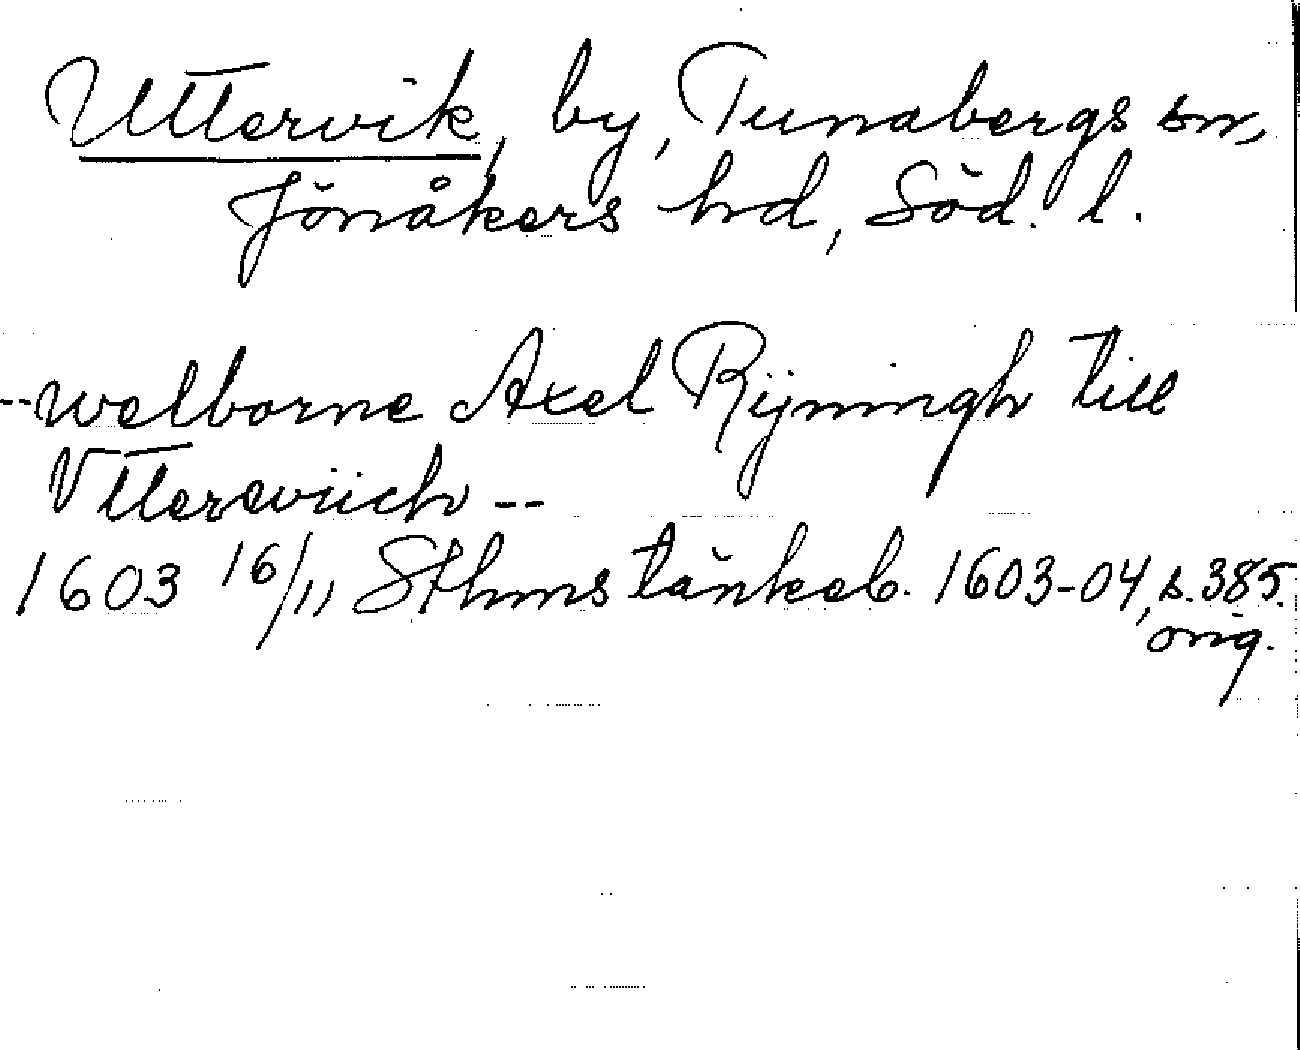 Uttervik, by, Tunabergs sn,
Jönåkers hd, Söd. l.
--welborne Axel Rÿningh till
Vtterewiich --
1603 16/11 Sthms tänkeb. 1603-04, s. 385.
orig.